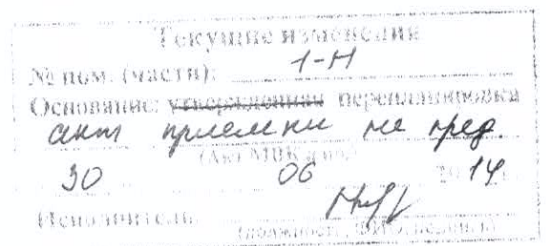 Текущие изменения
№ пом. (части): 1-Н
Основание: утвержденная перепланировка
акт приемки не пред.
(Акт МВК
30 06 2014
Исполнитель
(должность, Ф.И.О.